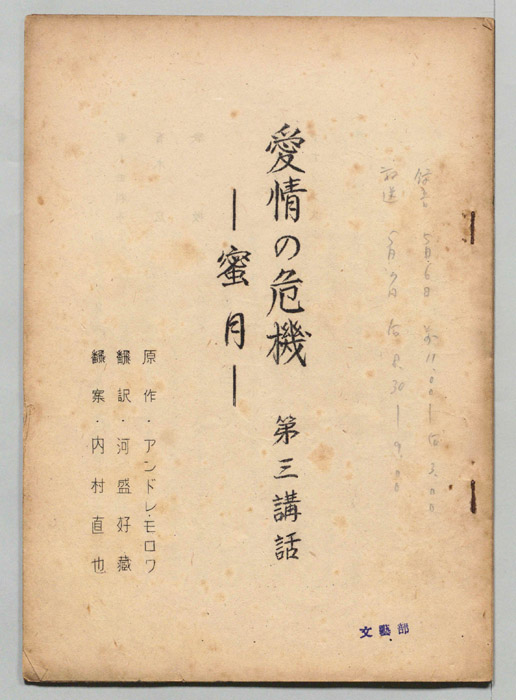 5月6日 前11.00—后3.00
放送 5月9日 后8.30—9.00
愛情の危機 第三講話
—蜜月—
原作・アンドレ・モロワ
飜訳・河盛好藏
飜案・内村直也
文藝部